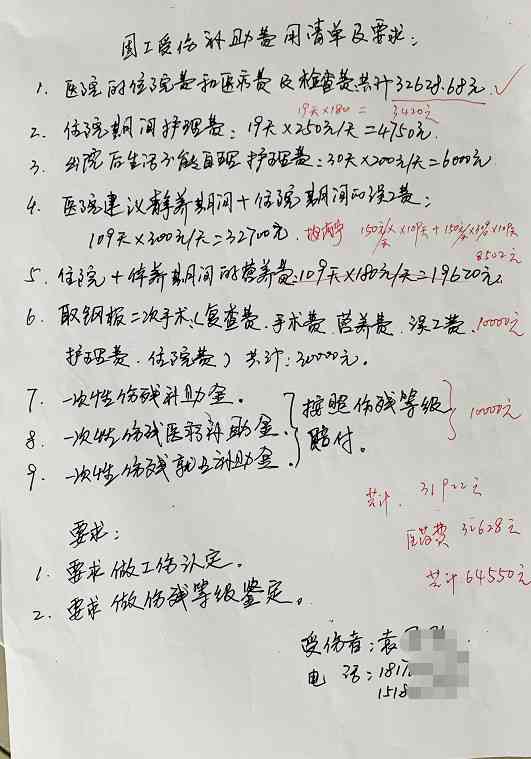 因工受伤补助费用清单及要求:
1. 医院的住院费和医疗费及检查费共计32628.68元 ✓
19天×180 = 3420元
2. 住院期间护理费: 19天×250元/天=4750元
3. 出院后生活不能自理护理费: 30天×200元/天=6000元
4. 医院建议静养期间+住院期间的误工费:
109天×300元/天=32700元.
150元/天×109天+150元/天
8502元
5. 住院+静养期间的营养费: 109天×180元/天=19620元
6. 取钢板二次手术(复查费.手术费.营养费.误工费. 10000元
护理费.住院费)共计:30000元.
7. 一次性伤残补助金.
8. 一次性伤残医疗补助金. 按照伤残等级 10000元
赔付.
9. 一次性伤残就业补助金.
共计. 31922元
医药费 32628元
共计64550元
要求:
1. 要求做工伤认定.
2. 要求做伤残等级鉴定.
受伤者:袁
电 话:1817
1518